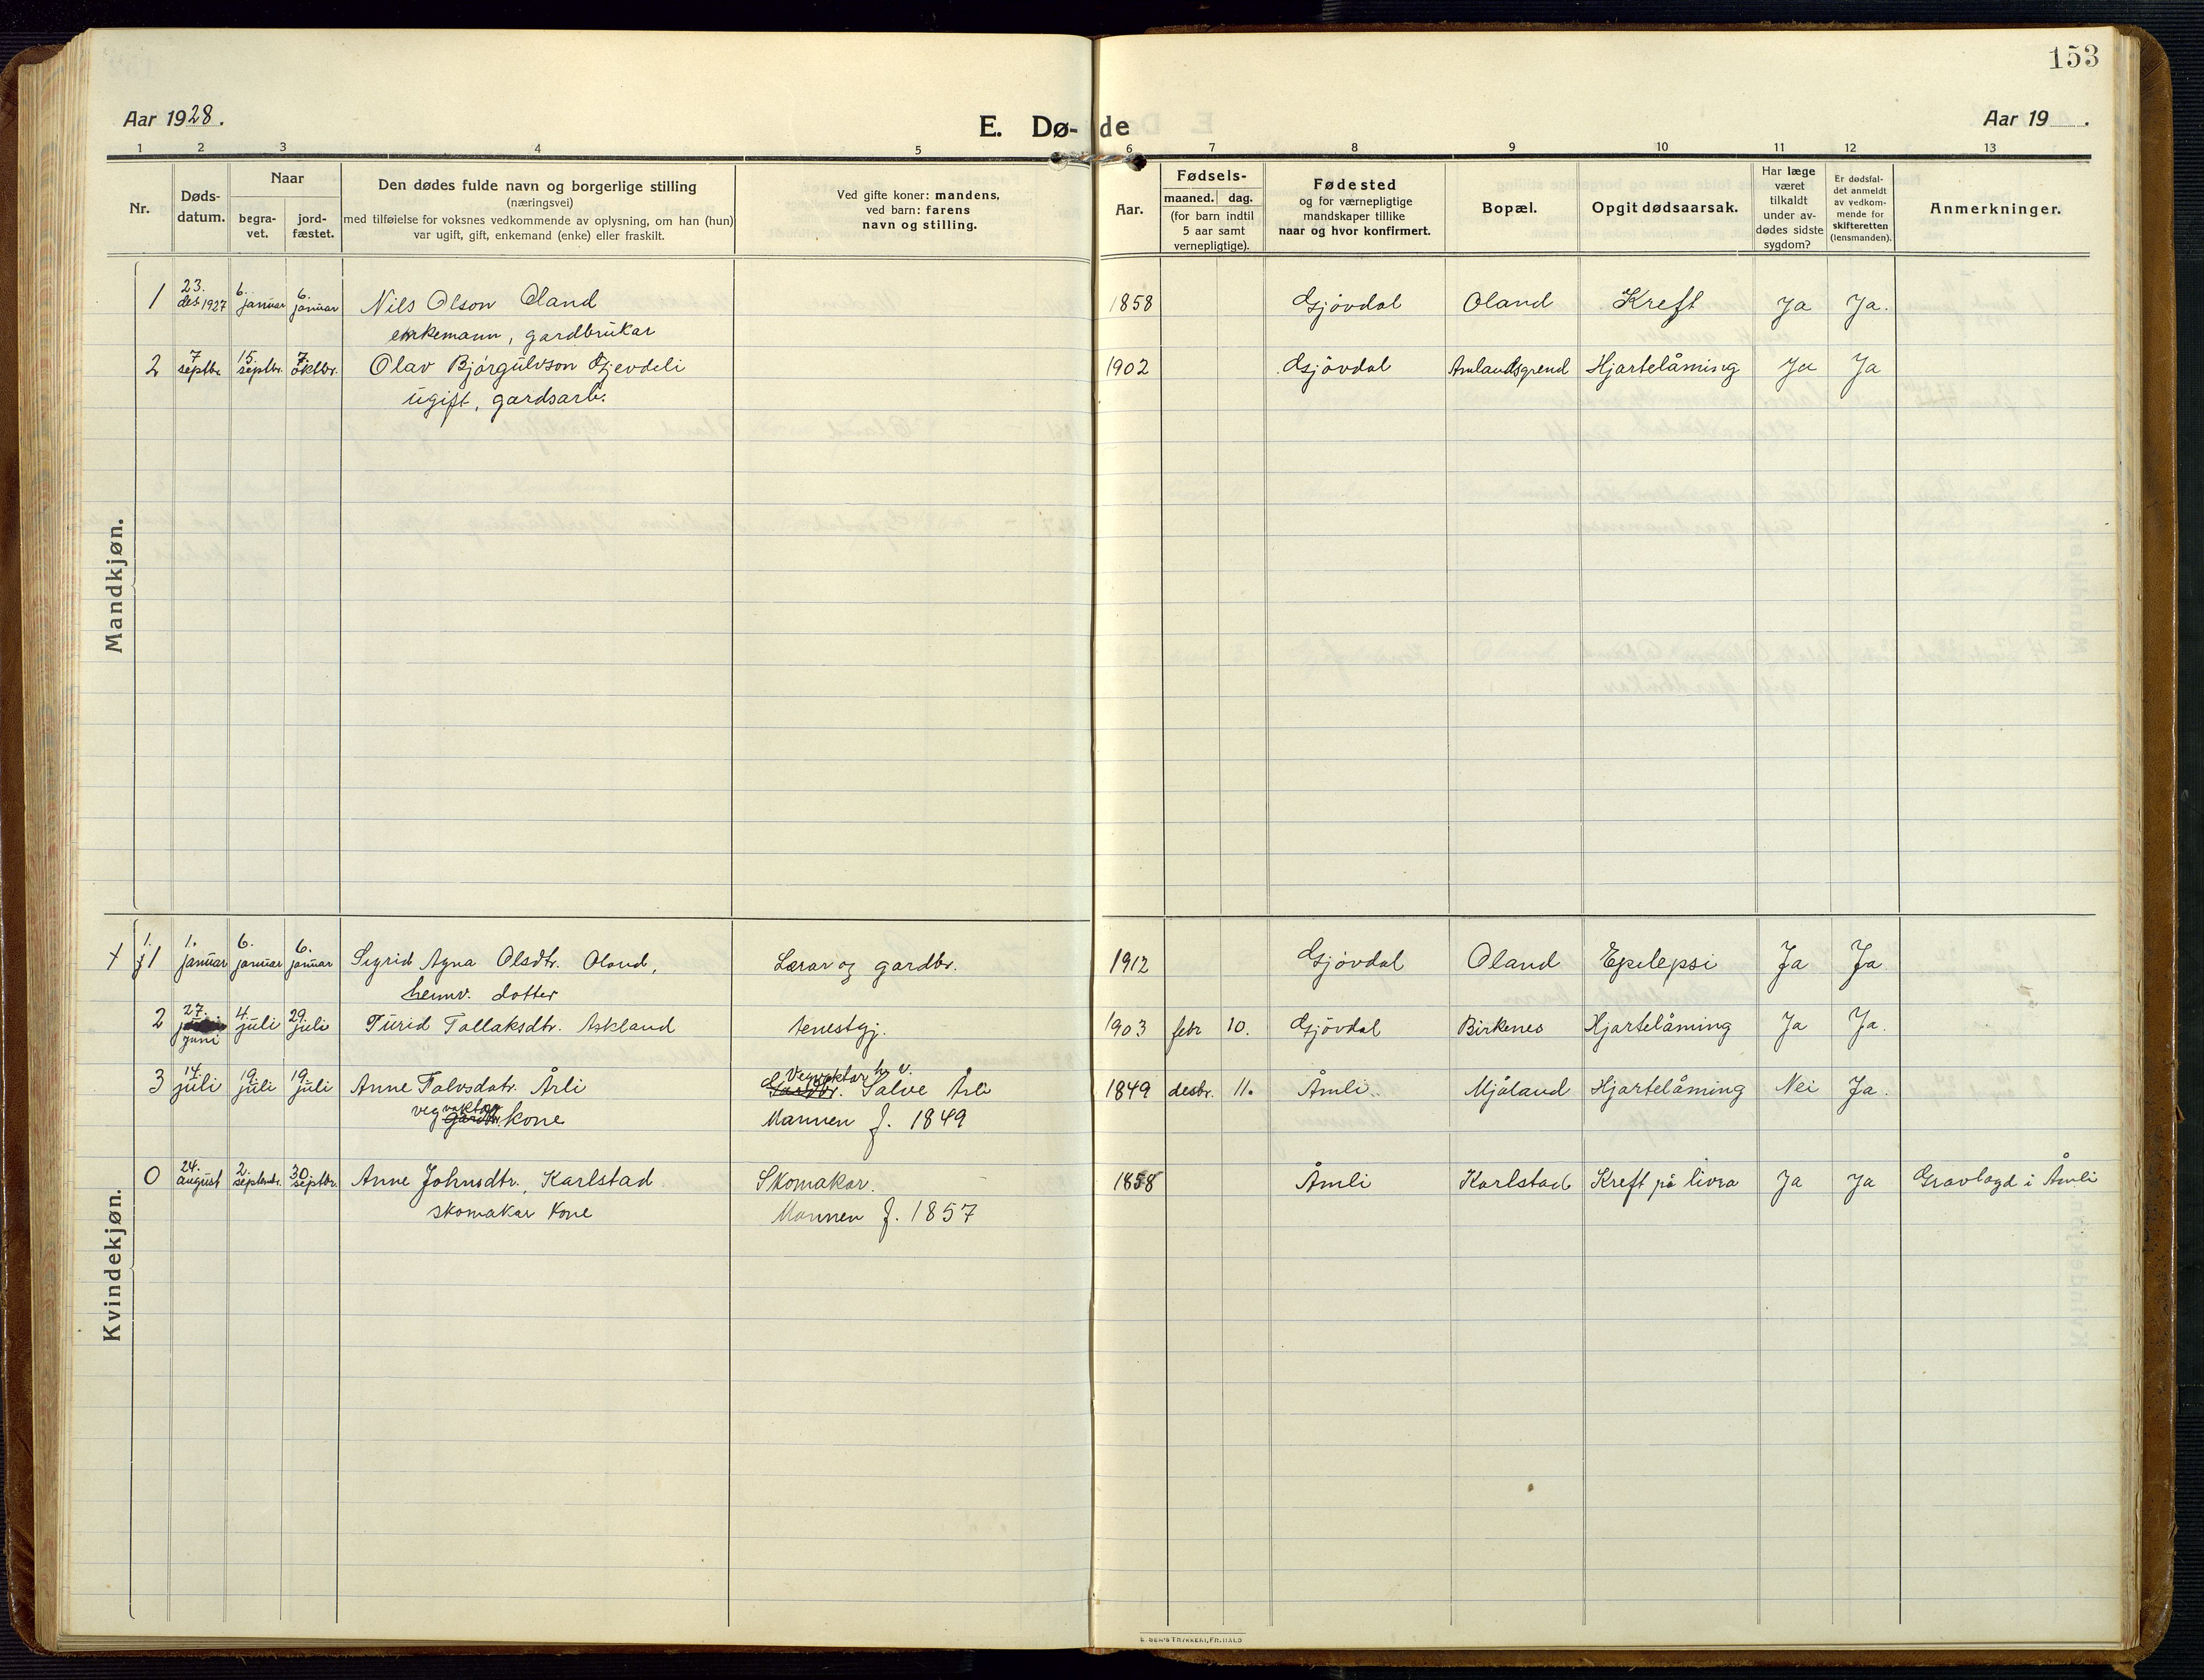 153
Aar 1928.
E. Dø- de
Aar 19 .
1 2 3 4 5 6 7 8 9 10 11 12 13
Nr.
Døds-
datum.
Naar
begra-
vet.
jord-
fæstet.
Den dødes fulde navn og borgerlige stilling
(næringsvei)
med tilføielse for voksnes vedkommende av oplysning, om han (hun)
var ugift, gift, enkemand (enke) eller fraskilt.
Ved gifte koner: mandens,
ved barn: farens
navn og stilling.
Aar.
Fødsels-
maaned. dag.
(for barn indtil
5 aar samt
vernepligtige).
Fødested
og for værnepligtige
mandskaper tillike
naar og hvor konfirmert.
Bopæl.
Opgit dødsaarsak.
Har læge
været
tilkaldt
under av-
dødes sidste
sygdom?
Er dødsfal-
det anmeldt
av vedkom-
mende for
skifteretten
(lensmanden).
Anmerkninger.
Mandkjøn.
1 23. des 1927 6. januar 6. januar Nils Olson Oland 1858 Gjövdal Oland Kreft Ja Ja.
enkemann, gardbrukar
2 7 septbr 15. septbr. 7. oktbr. Olav Bjørgulvson Gjevdeli 1902 Gjövdal Amlandsgrend Hjartelåming Ja Ja
ugift, gardsarb.
Kvindekjøn.
1. 1 1. januar 6. januar 6. januar Sigrid Agna Olsdtr. Oland, Lærar og gardbr. 1912 Gjövdal Oland Epilepsi Ja Ja.
heimv. dotter
2 27. juni 4. juli 29. juli Turid Tallaksdtr. Askland tenestgj. 1903 febr 10. Gjövdal Birkenes Hjartelåming Ja Ja.
Vegvoktar h. v.
3 14. juli 19. juli 19. juli Anne Talvsdatr. Årli Gardbr. Salve Årli 1849 desbr. 11. Åmli Mjåland Hjartelåming Nei Ja.
vegvoktar gardbr. kone Mannen f. 1849
0 24. august 2. septembr. 30. septbr. Anne Johnsdtr. Karlstad Skomakar. 1858 Åmli Karlstad Kreft på livra Ja Ja Gravlagd i Åmli
skomakar kone Mannen f. 1857